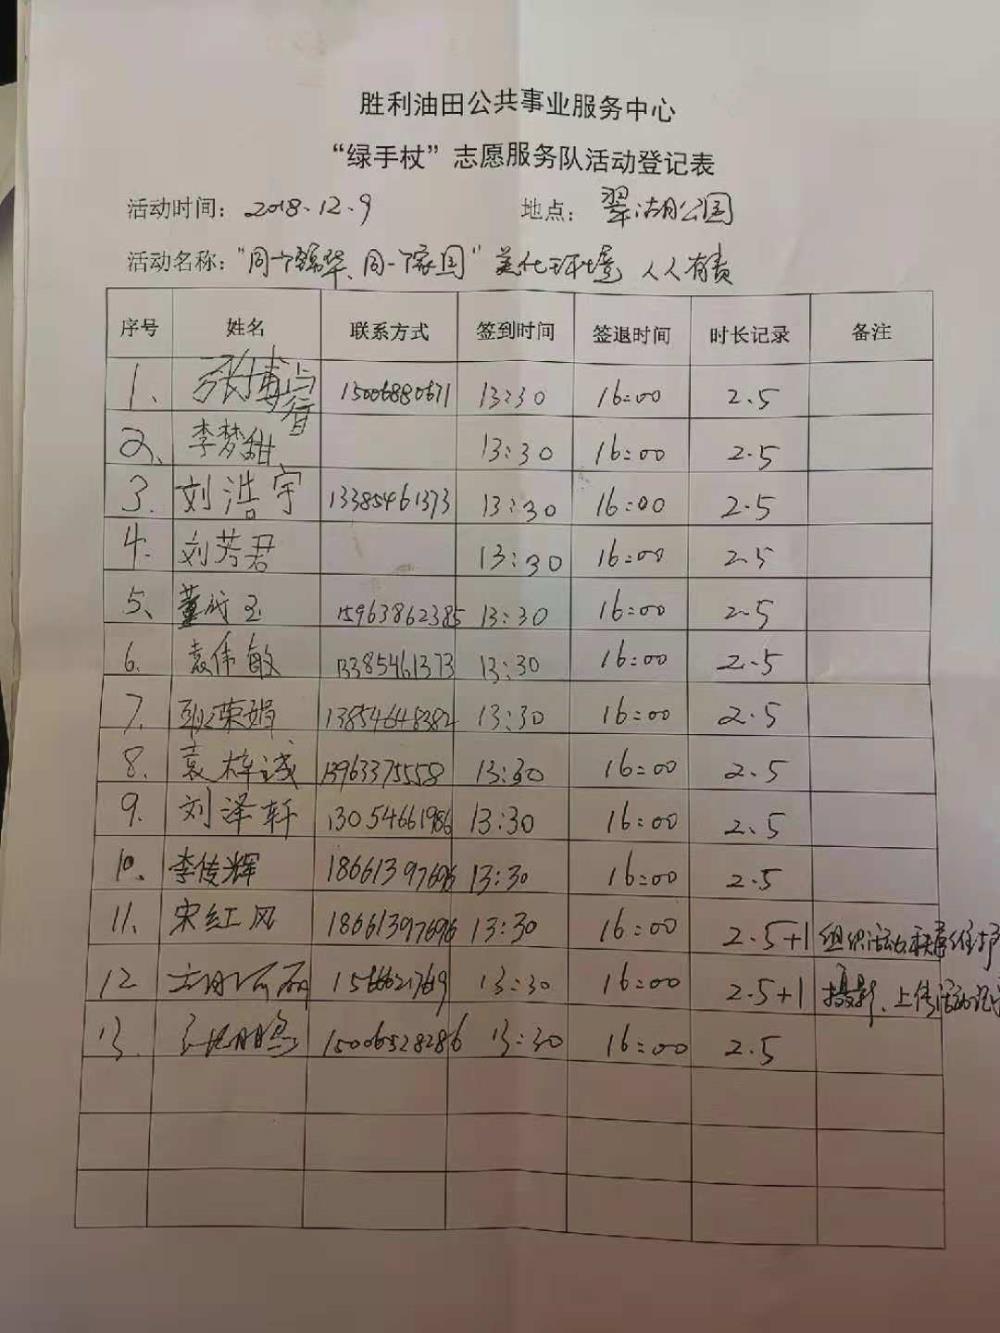 胜利油田公共事业服务中心
“绿手杖”志愿服务队活动登记表
活动时间：2018.12.9 地点：翠湖公园
活动名称：“同一个锦华、同一个家园”美化环境，人人有责
序号 姓名 联系方式 签到时间 签退时间 时长记录 备注
1、 张博睿 15006880671 13:30 16:00 2.5
2、 李梦甜 13:30 16:00 2.5
3. 刘浩宇 13385461373 13:30 16:00 2.5
4. 刘芳君 13:30 16:00 2.5
5、 董成玉 15963862385 13:30 16:00 2.5
6. 袁伟敏 13385461373 13:30 16:00 2.5
7. 荣娟 13854648382 13:30 16:00 2.5
8. 袁梓诚 13963375558 13:30 16:00 2.5
9. 刘泽轩 13054661986 13:30 16:00 2.5
10、 李传辉 18661397696 13:30 16:00 2.5
11. 宋红风 18661397696 13:30 16:00 2.5+1 组织活动、秩序维护
12 13:30 16:00 2.5+1 摄影、上传活动记录
13. 15006528286 13:30 16:00 2.5